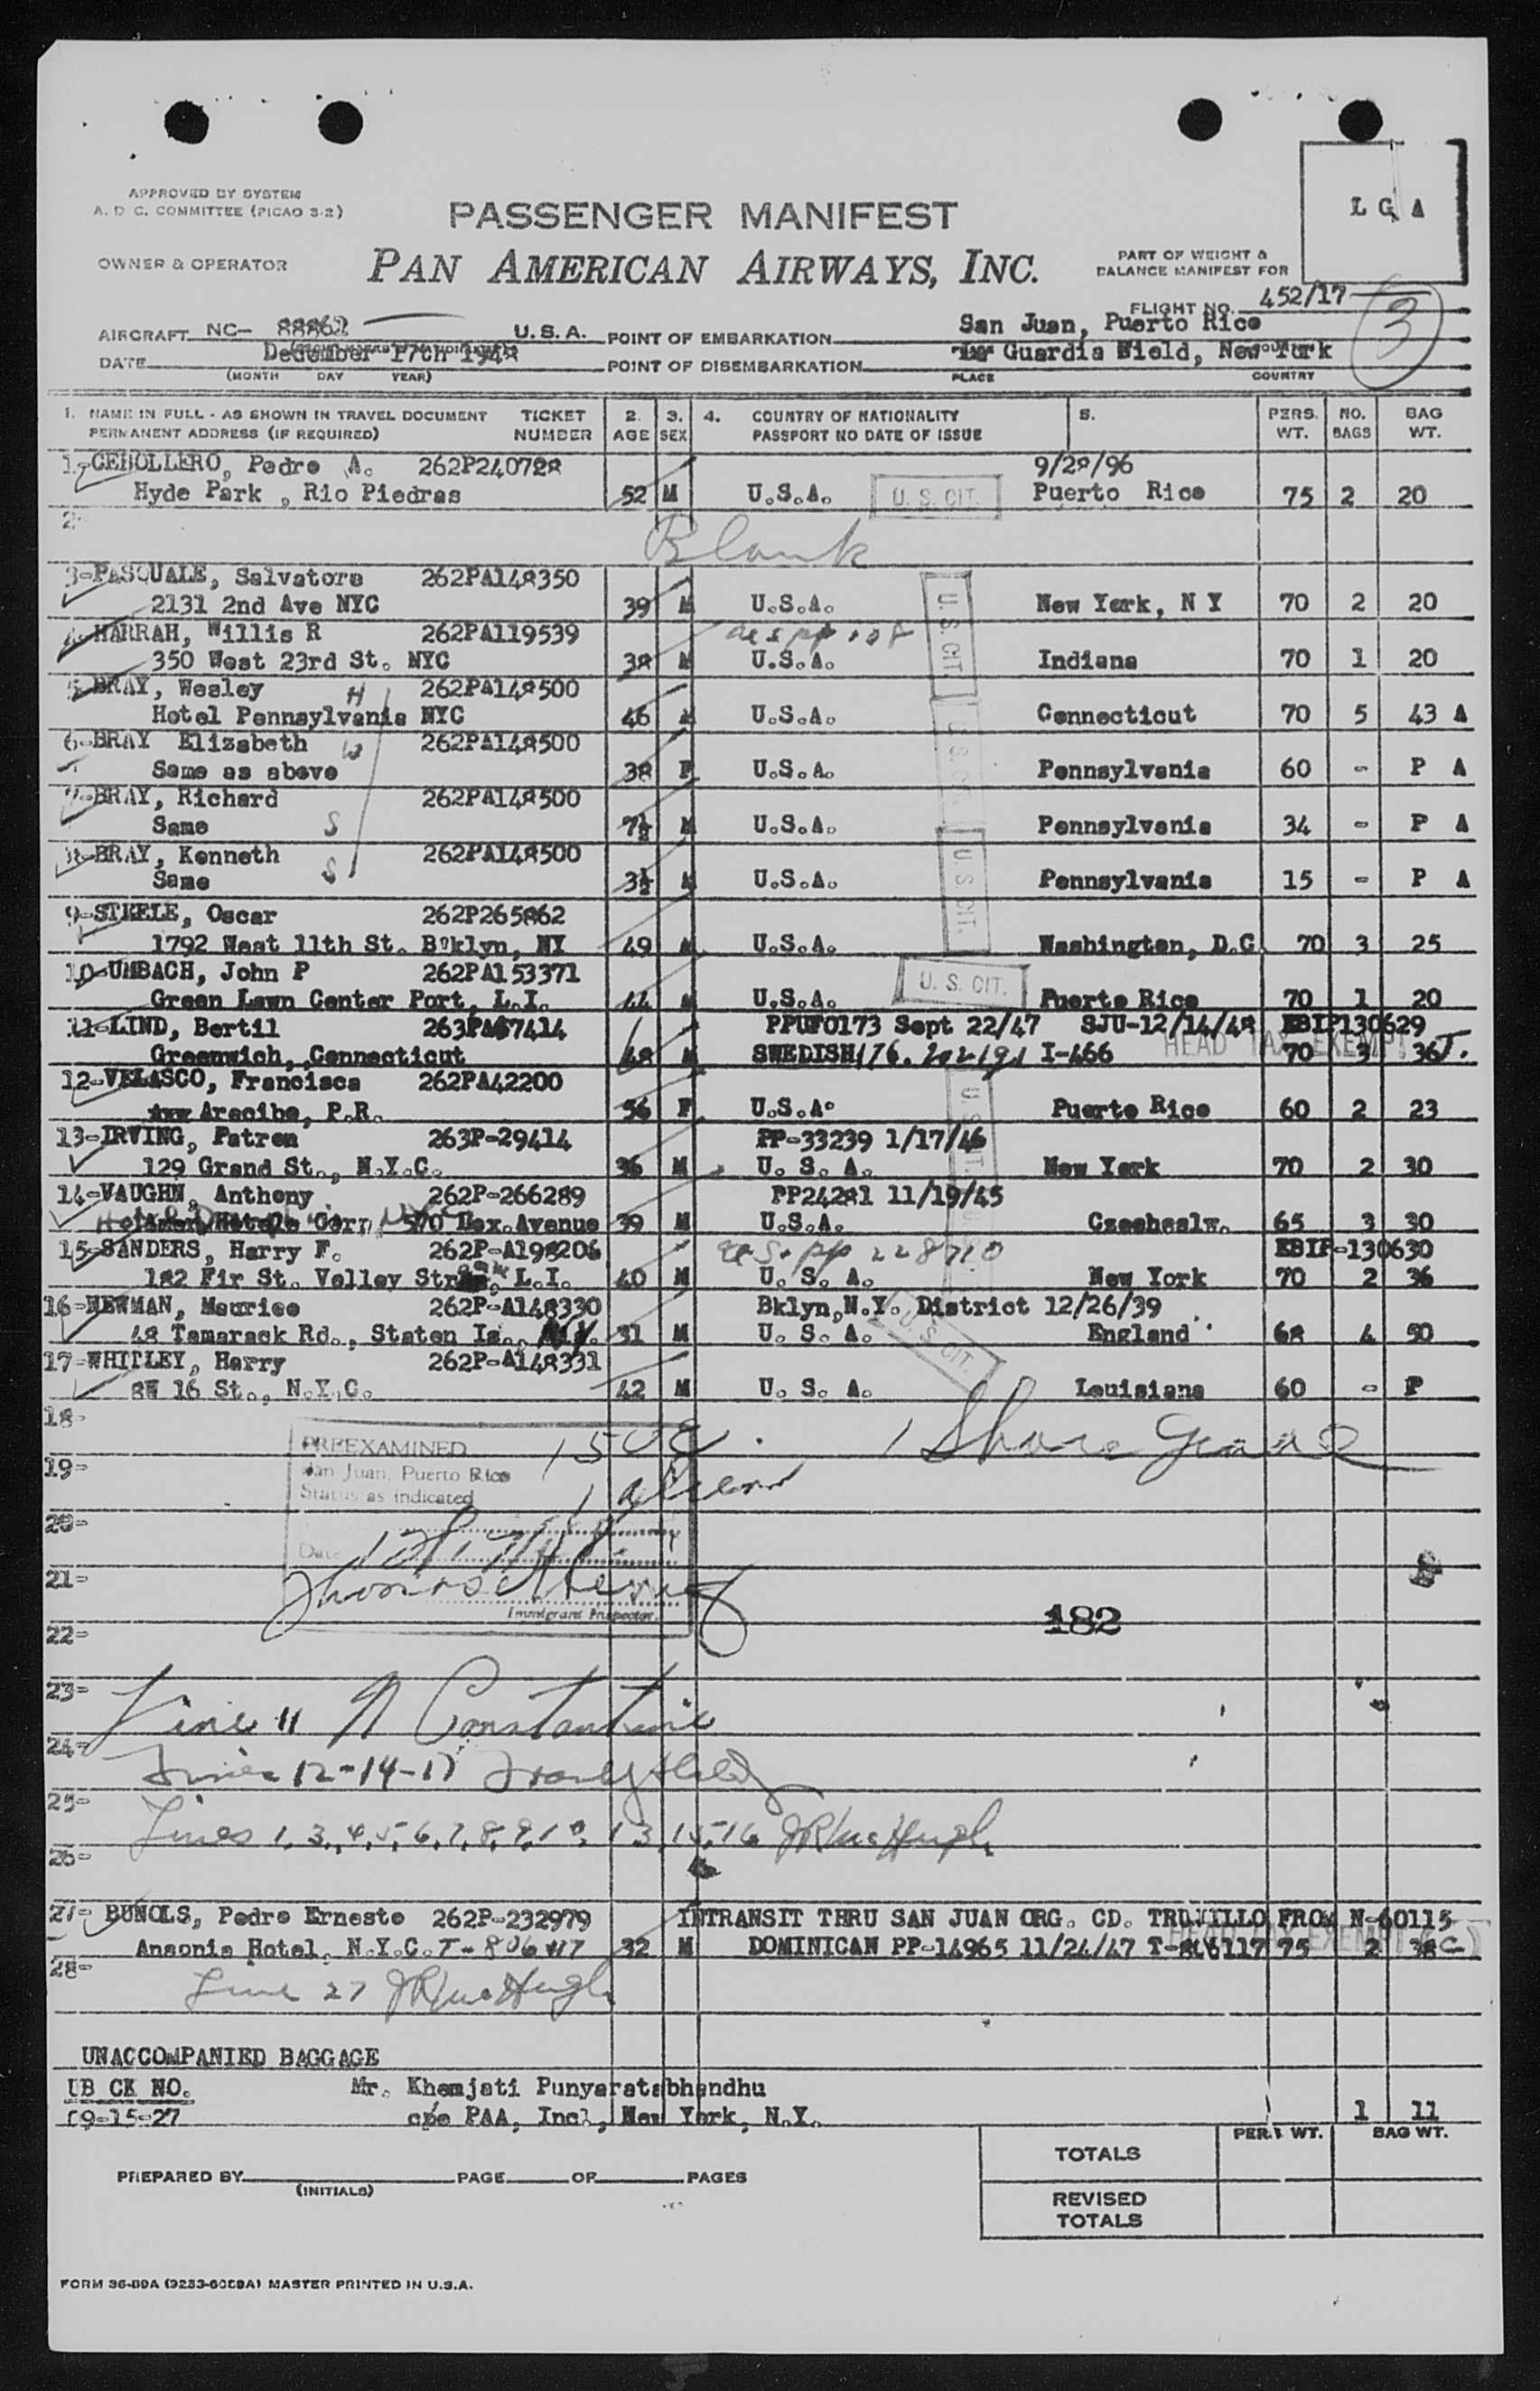 APPROVED BY SYSTEM
A. D C. COMMITTEE (PICAO 3-2)
PASSENGER MANIFEST
LGA
OWNER & OPERATOR
PAN AMERICAN AIRWAYS, INC.
PART OF WEIGHT &
BALANCE MANIFEST FOR
FLIGHT NO. 452/17
3
AIRCRAFT NC- 88862 U.S.A. POINT OF EMBARKATION San Juan, Puerto Rico
DATE December 17th 1948 POINT OF DISEMBARKATION Guardia Field, New York
(MONTH DAY YEAR) PLACE COUNTRY
1. NAME IN FULL - AS SHOWN IN TRAVEL DOCUMENT TICKET 2. 3. 4. COUNTRY OF NATIONALITY 5. PERS. NO. BAG
PERMANENT ADDRESS (IF REQUIRED) NUMBER AGE SEX PASSPORT NO DATE OF ISSUE WT. BAGS WT.
1-CEBOLLERO, Pedro A. 262P240728 9/28/96
Hyde Park , Rio Piedras 52 M U.S.A. U. S. CIT. Puerto Rico 75 2 20
2- Blank
3-PASQUALE, Salvatore 262PA148350
2131 2nd Ave NYC 39 M U.S.A. U. S. CIT. New York, N Y 70 2 20
4-HARRAH, Willis R 262PA119539
350 West 23rd St. NYC 38 M U.S.A. Indiana 70 1 20
5-BRAY, Wesley H 262PA148500
Hotel Pennsylvania NYC 46 M U.S.A. Connecticut 70 5 43 A
6-BRAY Elizabeth W 262PA148500
Same as above 38 F U.S.A. Pennsylvania 60 - P A
7-BRAY, Richard 262PA148500
Same S 7½ M U.S.A. Pennsylvania 34 - P A
8-BRAY, Kenneth 262PA148500
Same S 3½ M U.S.A. U. S. CIT. Pennsylvania 15 - P A
9-STEELE, Oscar 262P265862
1792 West 11th St. Boklyn, NY 49 M U.S.A. Washington, D.C. 70 3 25
10-UMBACH, John P 262PA153371
Green Lawn Center Port, L.I. 44 M U.S.A. U. S. CIT. Puerto Rico 70 1 20
11-LIND, Bertil 263PA67414 PPUF0173 Sept 22/47 SJU-12/14/48 EBIP130629
Greenwich, Connecticut 48 M SWEDISH I-466 HEAD TAX EXEMPT 70 3 36
12-VELASCO, Francisca 262PA42200
Arecibo, P.R. 56 F U.S.A. Puerto Rico 60 2 23
13-IRVING, Patrem 263P-29414 PP-33239 1/17/46
129 Grand St., N.Y.C. 36 M U. S. A. New York 70 2 30
14-VAUGHN, Anthony 262P-266289 PP24281 11/19/45
Hotels Corp, 570 Lex. Avenue 39 M U.S.A. Czechoslv. 65 3 30
15-SANDERS, Harry F. 262P-A198206 US. pp 228710 EBIP-130630
182 Fir St. Valley L.I. 40 M U. S. A. New York 70 2 36
16-NEWMAN, Maurice 262P-A148330 Bklyn,N.Y. District 12/26/39
48 Tamarack Rd., Staten Is., N.Y. 31 M U. S. A. U.S. CIT. England 68 4 50
17-WHITLEY, Harry 262P-A148331
8W 16 St., N.Y.C. 42 M U. S. A. Louisiana 60 - P
18-
PREEXAMINED 15 USC. 1
19- San Juan, Puerto Rico
Status as indicated 1 alien
20-
Date
21-
Immigrant Inspector.
182
22-
23-
Line 11 N Constantine
24-
Lines 12-14-17
25-
Lines 1, 3, 4, 5, 6, 7, 8, 9, 10, 13, 15, 16 JR McHugh
26-
27- BUNOLS, Pedro Ernesto 262P-232979 INTRANSIT THRU SAN JUAN ORG. CD. TRUJILLO FROM N-60115
Ansonia Hotel, N.Y.C. T-806117 32 M DOMINICAN PP-14965 11/24/47 T-806117 75 2 38
28-
Line 27 JR McHugh
UNACCOMPANIED BAGGAGE
UB CK NO. Mr. Khemjati Punyaratabhandhu
09-15-27 c/o PAA, Inc., New York, N.Y. 1 11
PERS WT. BAG WT.
TOTALS
PREPARED BY PAGE OF PAGES
(INITIALS)
REVISED
TOTALS
FORM 36-89A (9253-6089A) MASTER PRINTED IN U.S.A.